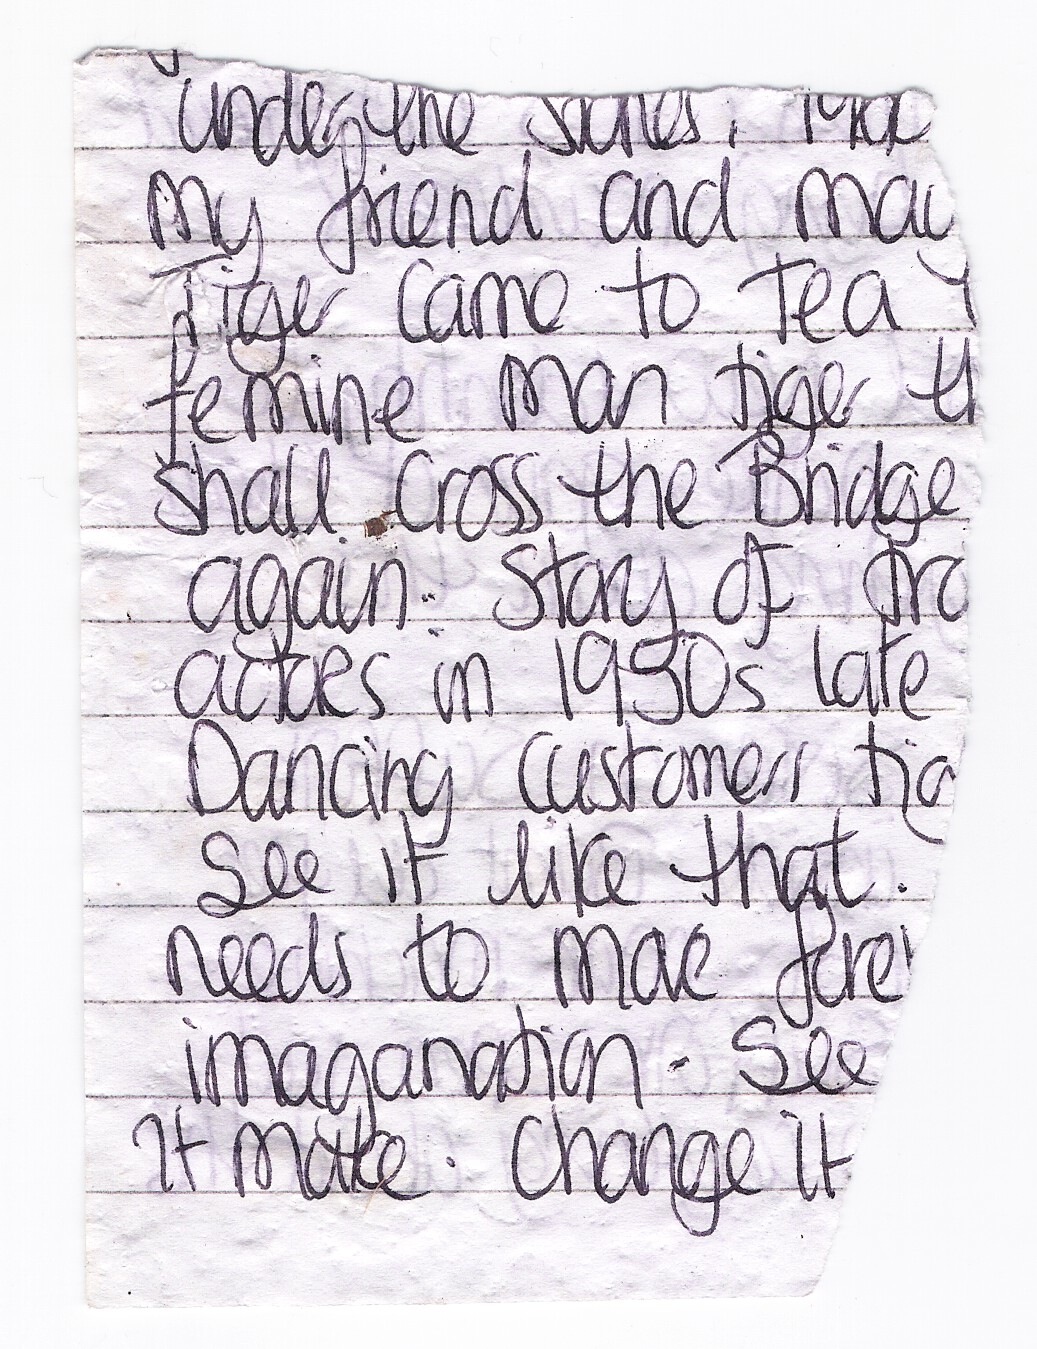 under the
my friend and
Tiger came to Tea
femine man tiger
shall cross the Bridge
again. Story of
actores in 1950s late
Dancing customers
See it like that.
needs to
imaganation - See
it make. Change it